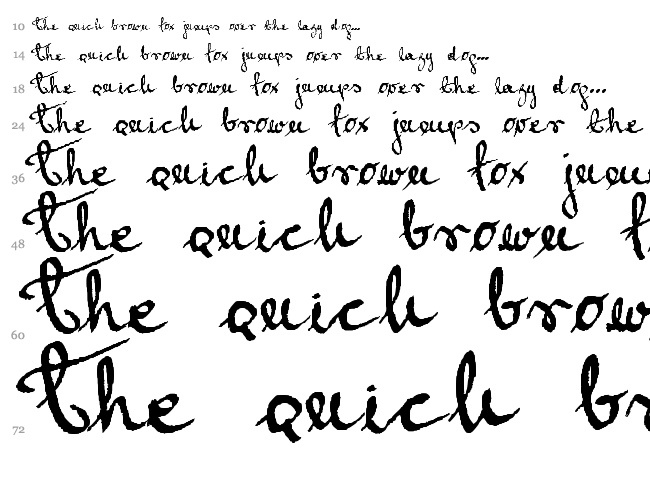 10 the quick brown fox jumps over the lazy dog...
14 the quick brown fox jumps over the lazy dog...
18 the quick brown fox jumps over the lazy dog...
24 the quick brown fox jumps over the
36 the quick brown fox jump
48 the quick brown f
60 the quick brow
72 the quick br